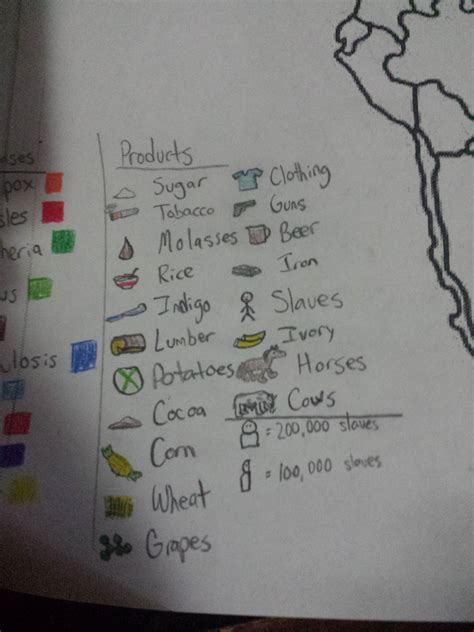 ases
pox
sles
heria
us
ulosis
Products
Sugar
Tobacco
Molasses
Rice
Indigo
Lumber
Potatoes
Cocoa
Corn
Wheat
Grapes
Clothing
Guns
Beer
Iron
Slaves
Ivory
Horses
Cows
= 200,000 slaves
= 100,000 slaves